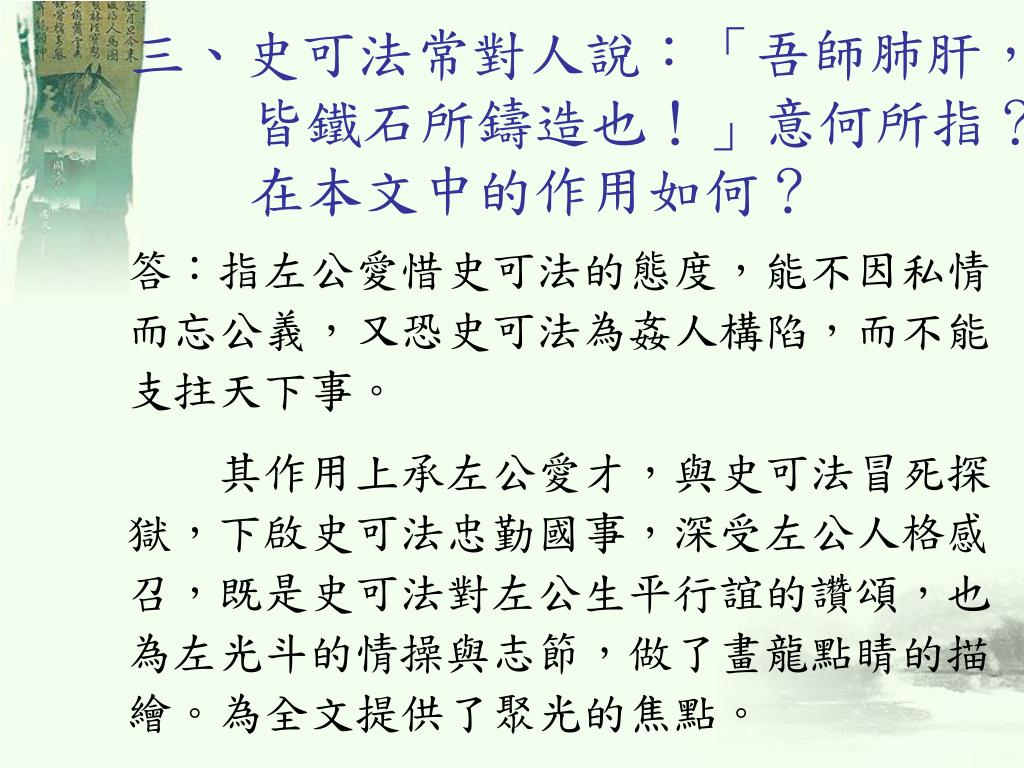 三、史可法常對人說：「吾師肺肝，
皆鐵石所鑄造也！」意何所指？
在本文中的作用如何？
答：指左公愛惜史可法的態度，能不因私情
而忘公義，又恐史可法為姦人構陷，而不能
支拄天下事。
其作用上承左公愛才，與史可法冒死探
獄，下啟史可法忠勤國事，深受左公人格感
召，既是史可法對左公生平行誼的讚頌，也
為左光斗的情操與志節，做了畫龍點睛的描
繪。為全文提供了聚光的焦點。